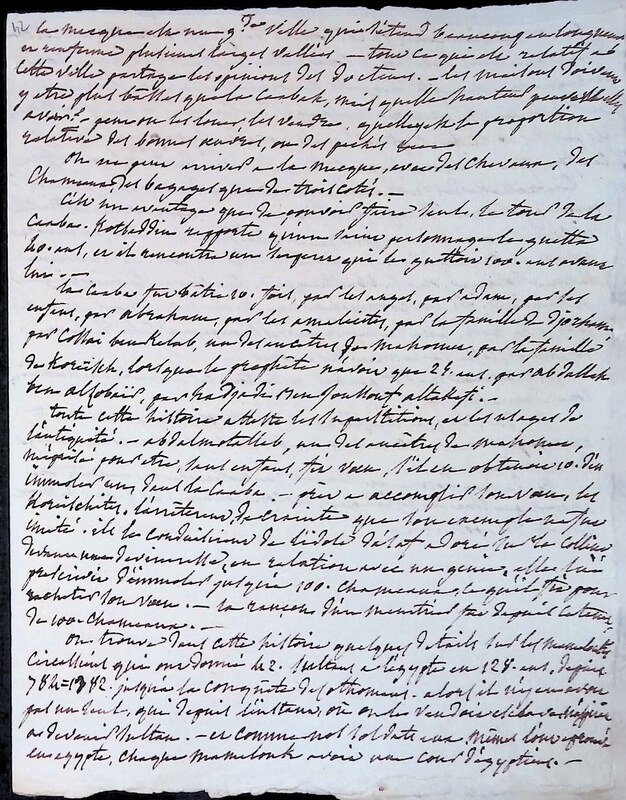 42
la mecque est une gde ville qui s'étend beaucoup en longueur
et renferme plusieurs larges vallées – tout ce qui est relatif à
cette ville partage les opinions des docteurs. – les maisons doivent
y etre plus basses que la Caabah, mais quelle hauteur peuvent elles
avoir? – peut on les louer les vendre, quelle est la proportion
relative des bonnes œuvres, ou des pechés
On ne peut arriver à la mecque, avec des chevaux, des
Chameaux des bagages que de trois cotés. –
C'est un avantage que de pouvoir faire seul, le tour de la
Caaba. Kothbeddin rapporte qu'un saint personnage le guetta
40. ans, et il rencontra un serpent qui le guettoit 100. ans avant
lui. –
la Caaba fut batie 10. fois, par les anges, par adam, par les
enfans, par abraham, par les amalecites, par la famille de Djorham
par Cossai ben Kelab, un des ancetres de mahomet, par la famille
de Koreisch, lorsque le prophète n'avoit que 25. ans, par abdallah
ben alzobaïr, par hadjadj ben Joussouf altakefi. –
toute cette histoire atteste les superstitions, et les usages de
l'antiquité. – abdalmotalleb, un des ancetres de mahomet,
méprisé pour etre, sans enfans, fit vœu, s'il en obtenoit 10. d'en
immoler un, dans la Caaba. – pret a accomplir son vœu, les
Koreischites, l'arrèterent, de crainte que son exemple ne fut
imité. ils le conduisirent de l'idole adoré sur la colline
devant une devineresse, en relation avec un génie, elle lui
prescrivit d'immoler jusqu'à 100. chameaux, ce qu'il fit pour
racheter son vœu. – la rançon d'un meurtre fut depuis ce tems
de 100. chameaux. –
On trouve dans cette histoire quelques details sur les mamelouks
Circassiens qui ont donné 22. sultans a l'egypte en 125. ans, depuis
784=1382. jusqu'à la conquète des othomans. alors il n'y en avoit
pas un seul, qui depuis l'instant, où on le vendoit esclave n'aspira
a devenir sultan. – et comme nos soldats eux mêmes l'ont éprouvé
en egypte, chaque mamelouk avoit une cour d'égyptiens. –